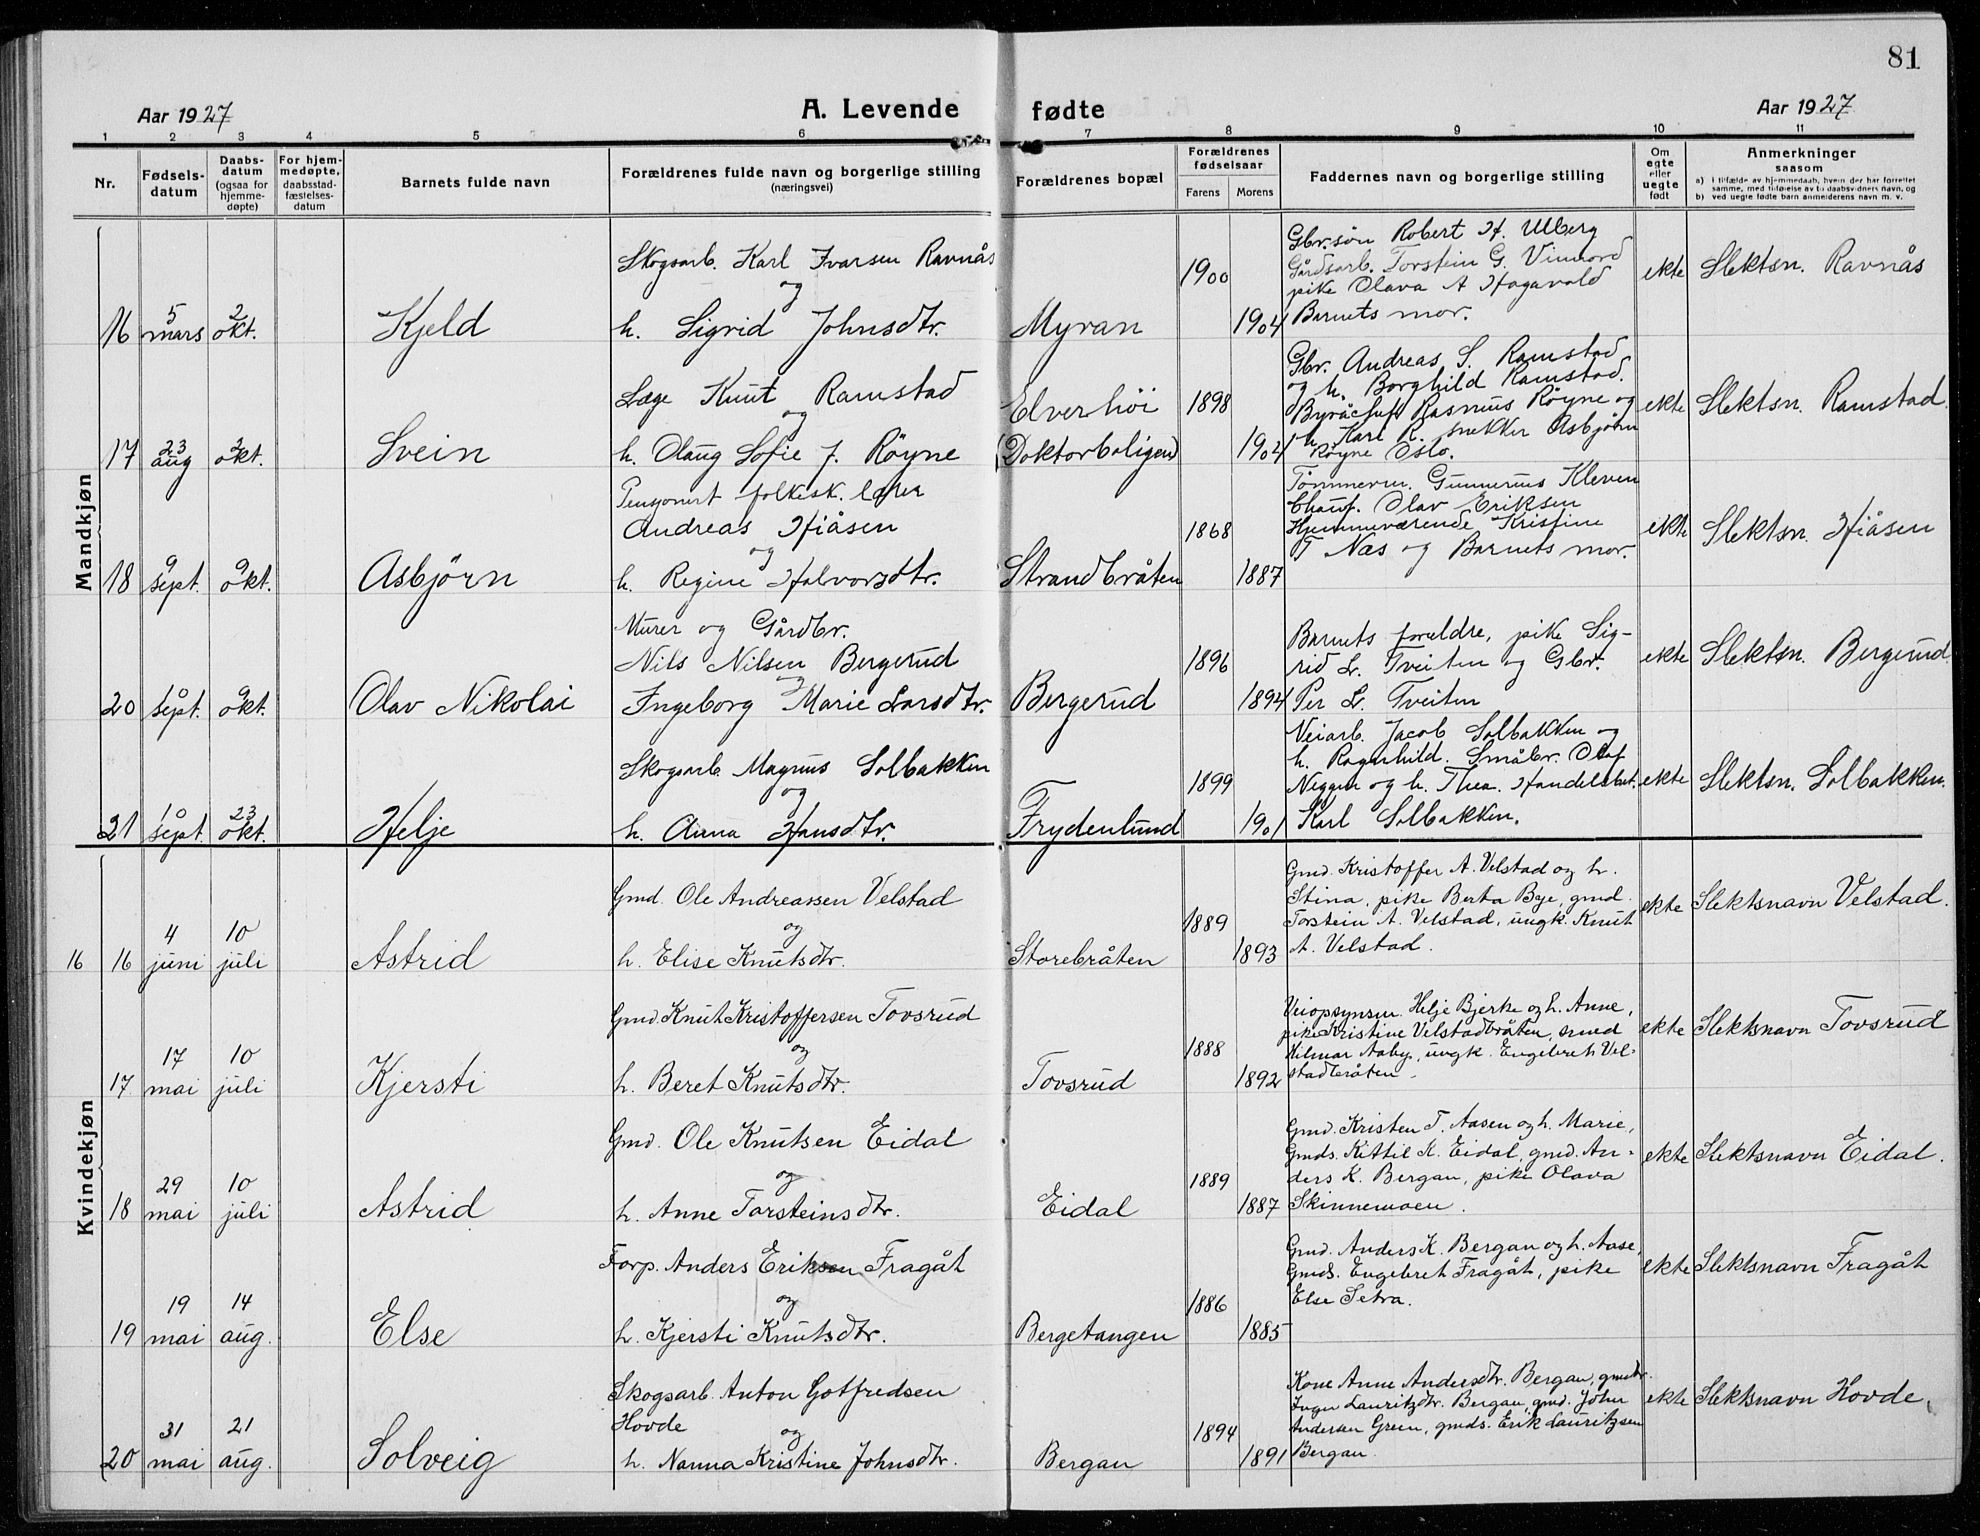 81
Aar 1927
A. Levende fødte
Aar 1927
1 2 3 4 5 6 7 8 9 10 11
Nr.
Fødsels-
datum
Daabs-
datum
(ogsaa for
hjemme-
døpte)
For hjem-
medøpte,
daabsstad-
fæstelses-
datum
Barnets fulde navn
Forældrenes fulde navn og borgerlige stilling
(næringsvei)
Forældrenes bopæl
Forældrenes
fødselsaar
Farens
Morens
Faddernes navn og borgerlige stilling
Om
egte
eller
uegte
født
Anmerkninger
saasom
a) i tilfælde av hjemmedaab, hvem der har forrettet
samme, med tilføielse av to daabsvidners navn, og
b) ved uegte fødte barn anmelderens navn m. v.
Mandkjøn
16
5
mars
2
okt.
Kjeld
Skogsarb. Karl Ivarsen Ravnås
og
h. Sigrid Johnsdtr.
Myran
1900
1904
Gbr.søn Robert H. Ulberg
Gårdsarb. Torstein G. Vinnord
pike Olava A Hagavold
Barnets mor.
ekte
Slektsn. Ravnås
17
23
aug
2
okt.
Svein
Læge Knut Ramstad
og
h. Olaug Sofie J. Røyne
Elverhöi
(Doktorboligen)
1898
1904
Gbr. Andreas S. Ramstad
og h. Borghild Ramstad.
Byråchef Rasmus Røyne og
h. Kari R. snekker Asbjørn
Røyne Oslo.
ekte
Slektsn. Ramstad.
18
9
sept.
9
okt.
Asbjørn
Pensjonert folkesk. lærer
Andreas Hiåsen
og
h. Regine Halvorsdtr.
Strandbråten
1868
1887
Tømmerm. Gunnerius Kleven
Chauf. Olav Eriksen
Hjemmeværende Kristine
T Næs og Barnets mor.
ekte
Slektsn. Hiåsen
20
9
sept.
9
okt.
Olav Nikolai
Murer og Gårdbr.
Nils Nilsen Bergerud
og
Ingeborg Marie Larsdtr.
Bergerud
1896
1894
Barnets foreldre, pike Sig-
rid L. Tveiten og Gbr.
Per L. Tveiten
ekte
Slektsn. Bergerud.
21
sept.
23
okt.
Helje
Skogsarb. Magnus Solbakken
og
h. Anna Hansdtr.
Frydenlund
1899
1901
Veiarb. Jacob Solbakken og
h. Ragnhild. Småbr. Olaf
Neggen og h. Thea. Handelsbet.
Karl Solbakken.
ekte
Slektsn. Solbakken.
Kvindekjøn
16
16
4
juni
10
juli
Astrid
Gmd. Ole Andreassen Velstad
og
h. Elise Knutsdtr.
Storebråten
1889
1893
Gmd. Kristoffer A. Velstad og h.
Stina, pike Berta Bye, gmd.
Torstein A. Velstad, ungk. Knut
A. Velstad.
ekte
Slektsnavn Velstad.
17
17
mai
10
juli
Kjersti
Gmd. Knut Kristoffersen Tovsrud
og
h. Beret Knutsdtr.
Tovsrud
1888
1892
Veiopsynsm. Helje Bjerke og h. Anne,
pike Kristine Velstadbråten, smed
Hilmar Aaby, ungk. Engebret Vel-
stadbråten.
ekte
Slektsnavn Tovsrud
18
29
mai
10
juli
Astrid
Gmd. Ole Knutsen Eidal
og
h. Anne Torsteinsdtr.
Eidal
1889
1887
Gmd. Kristen T. Aasen og h. Marie,
Gmds. Kittil K. Eidal, gmd. An-
ders K. Bergan, pike Olava
Skinnemoen.
ekte
Slektsnavn Eidal.
19
19
mai
14
aug.
Else
Forp. Anders Eriksen Fragåt
og
h. Kjersti Knutsdtr.
Bergetangen
1886
1885
Gmd. Anders K. Bergan og h. Aase,
Gmds. Engebret Fragåt, pike
Else Setra.
ekte
Slektsnavn Fragåt
20
31
mai
21
aug.
Solveig
Skogsarb. Anton Gotfredsen
Hovde
og
h. Nanna Kristine Johnsdtr.
Bergan
1894
1891
Kone Anne Andersdtr. Bergan, gmdtr.
Inger Lauritzdtr. Bergan, gmd. John
Andersen Green, gmds. Erik Lauritzsen
Bergan.
ekte
Slektsnavn Hovde.